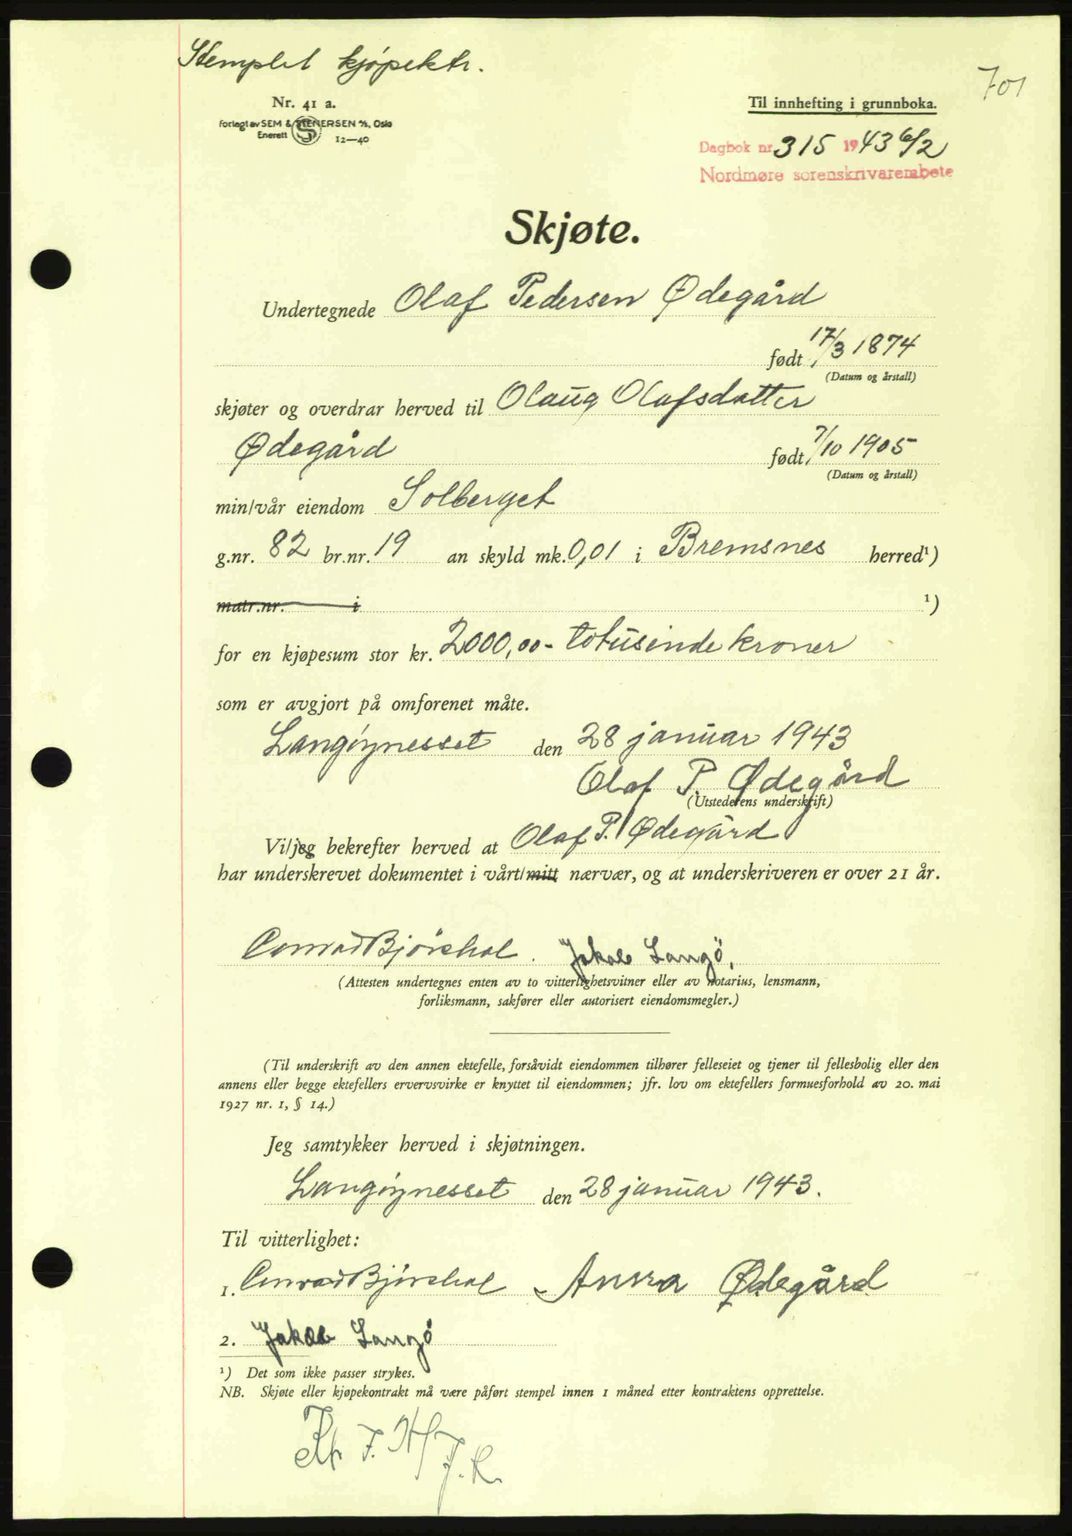 Stemplet kjøpektr.
701
Nr. 41 a.
Til innhefting i grunnboka.
Forlagt av SEM & STENERSEN A/S, Oslo
Enerett
12—40
Dagbok nr. 315 1943 6/2
Nordmøre sorenskrivarembete
Skjøte.
Undertegnede Olaf Pedersen Ødegård
født 17/3 1874
(Datum og årstall)
skjøter og overdrar herved til Olaug Olafsdatter
Ødegård født 7/10 1905
(Datum og årstall)
min/vår eiendom Solberget
g.nr. 82 br.nr. 19 an skyld mk. 0,01 i Bremsnes herred¹)
matr.nr. i ¹)
for en kjøpesum stor kr. 2000,00 - totusinde kroner
som er avgjort på omforenet måte.
Langøynesset den 28 januar 1943
Olaf P. Ødegård
(Utstederens underskrift)
Vi/jeg bekrefter herved at Olaf P. Ødegård
har underskrevet dokumentet i vårt/mitt nærvær, og at underskriveren er over 21 år.
Conrad Bjørshol. Jakob Langö.
(Attesten undertegnes enten av to vitterlighetsvitner eller av notarius, lensmann,
forliksmann, sakfører eller autorisert eiendomsmegler.)
(Til underskrift av den annen ektefelle, forsåvidt eiendommen tilhører felleseiet og tjener til fellesbolig eller den
annens eller begge ektefellers ervervsvirke er knyttet til eiendommen; jfr. lov om ektefellers formuesforhold av 20. mai
1927 nr. 1, § 14.)
Jeg samtykker herved i skjøtningen.
Langøynesset den 28 januar 1943.
Til vitterlighet:
1. Conrad Bjørshol Anna Ødegård
2. Jakob Langö
¹) Det som ikke passer strykes.
NB. Skjøte eller kjøpekontrakt må være påført stempel innen 1 måned etter kontraktens opprettelse.